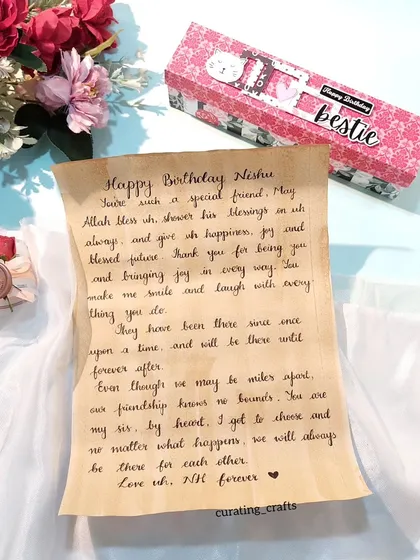 Happy Birthday
bestie
Happy Birthday Nishu
You're such a special friend, May
Allah bless uh, shower his blessings on uh
always, and give uh happiness, joy and
blessed future. Thank you for being you
and bringing joy in every way. You
make me smile and laugh with every
thing you do.
They have been there since once
upon a time, and will be there until
forever after.
Even though we may be miles apart,
our friendship knows no bounds. You are
my sis, by heart, I got to choose and
no matter what happens, we will always
be there for each other.
Love uh, NH forever
curating_crafts